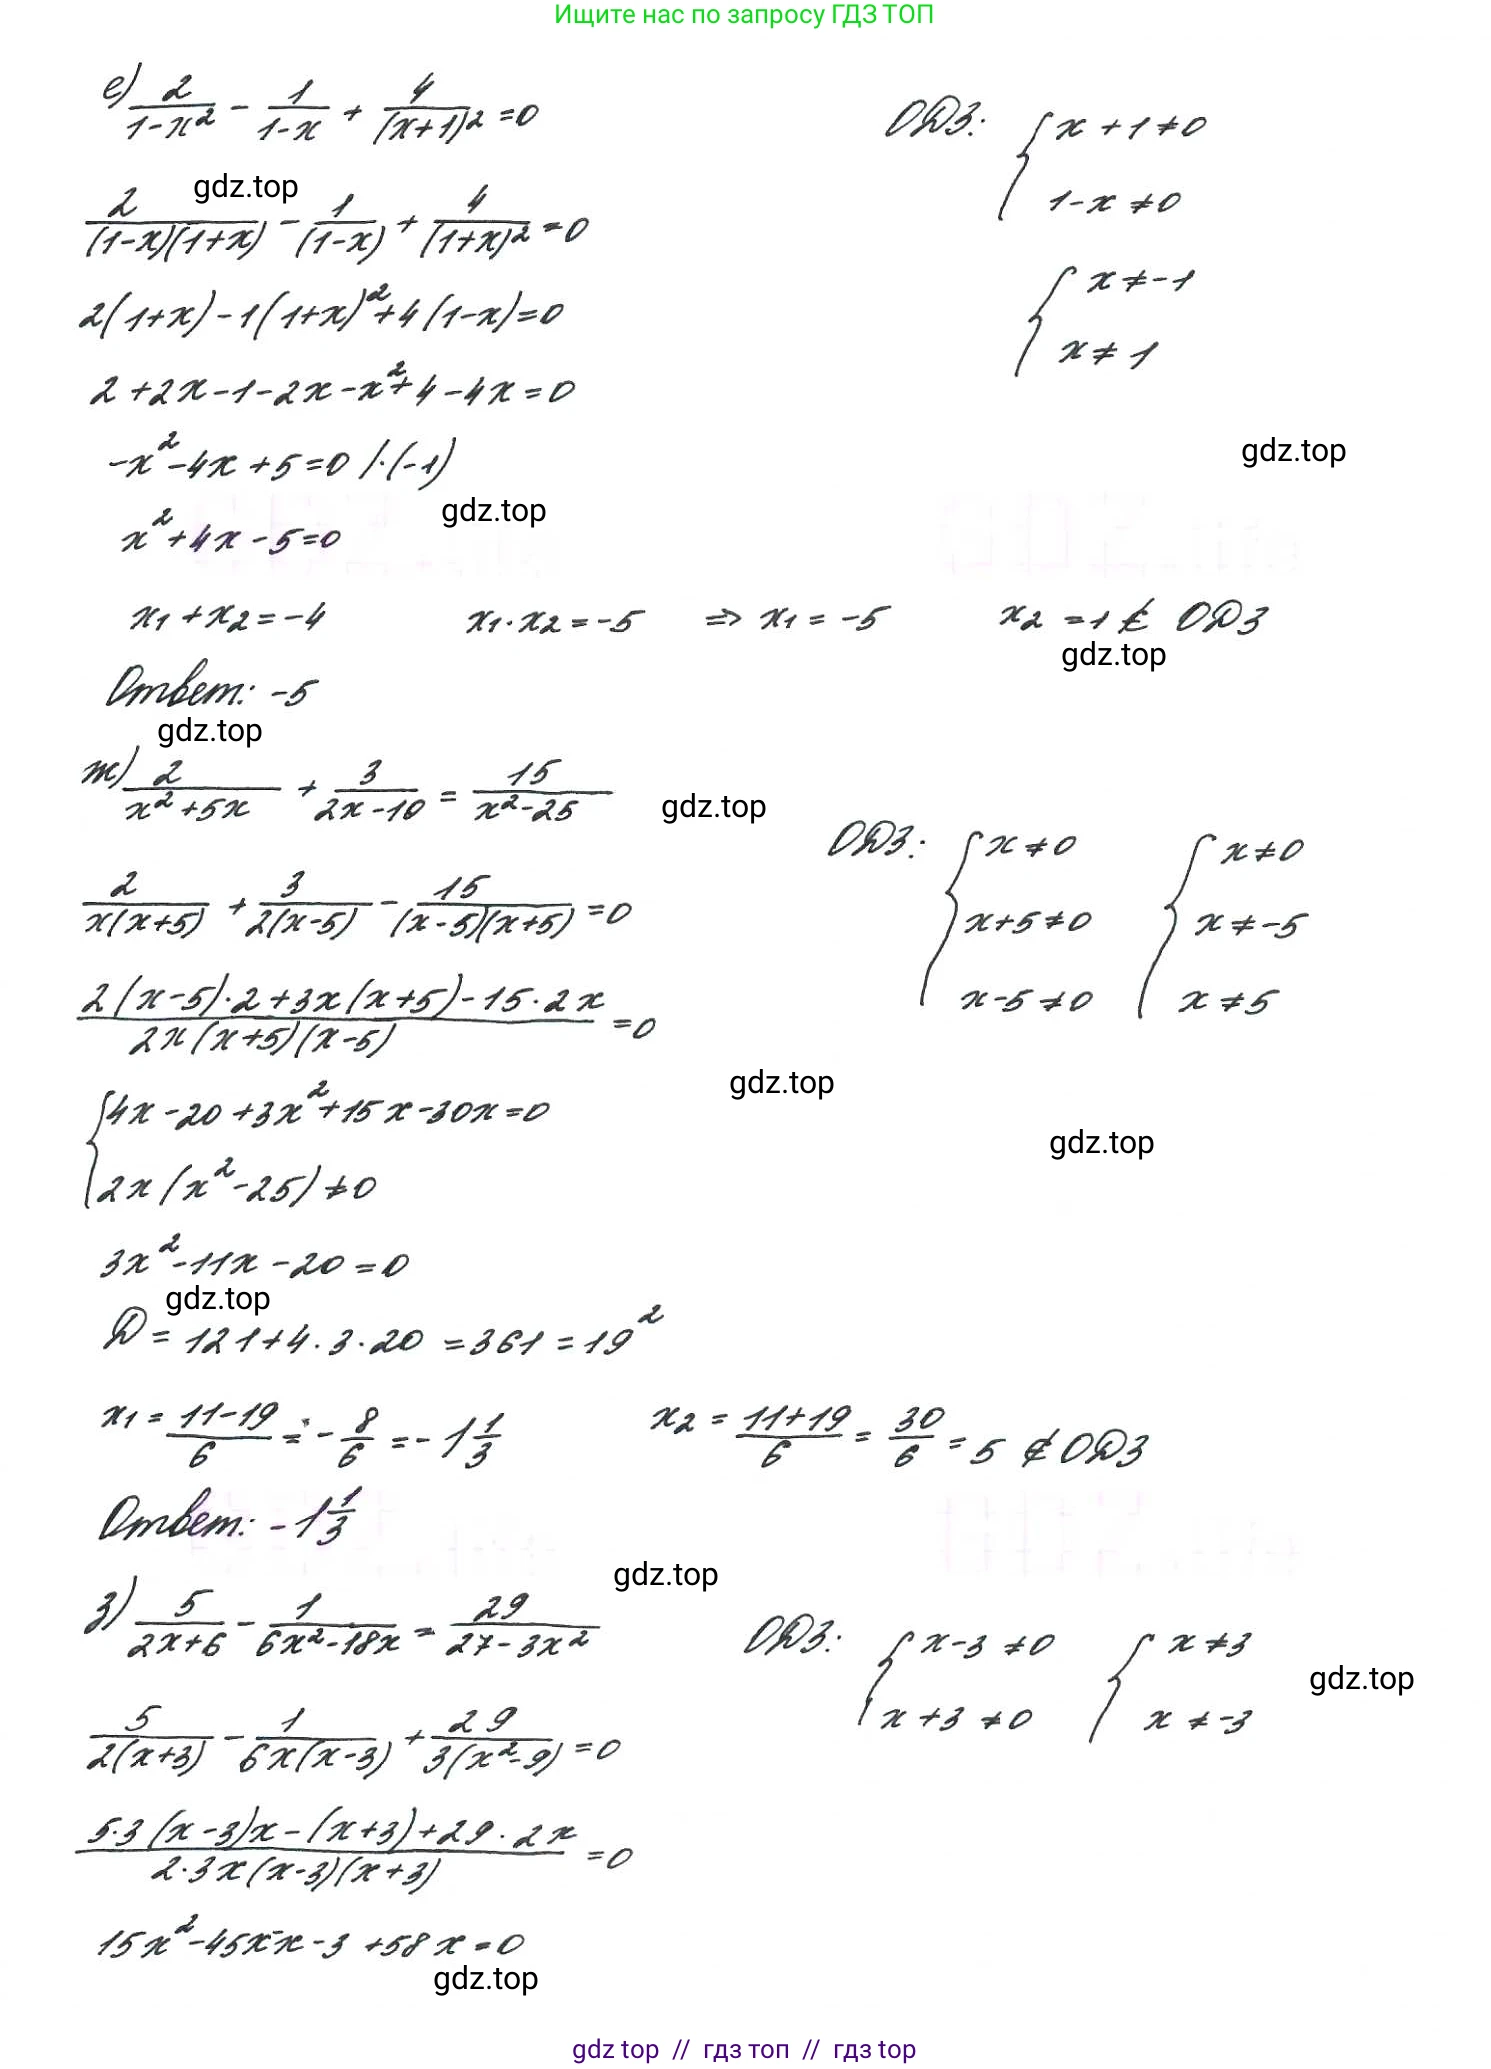 Ищите нас по запросу ГДЗ ТОП
е) 2/(1-x²) - 1/(1-x) + 4/(x+1)² = 0 ОДЗ: { x+1≠0
gdz.top
1-x≠0
2/((1-x)(1+x)) - 1/(1-x) + 4/(1+x)² = 0
{ x≠-1
2(1+x)-1(1+x)²+4(1-x)=0
x≠1
2+2x-1-2x-x²+4-4x=0
-x²-4x+5=0 /·(-1)
gdz.top
gdz.top
x²+4x-5=0
x₁+x₂=-4 x₁·x₂=-5 ⇒ x₁=-5 x₂=1 ∉ ОДЗ
gdz.top
Ответ: -5
gdz.top
ж) 2/(x²+5x) + 3/(2x-10) = 15/(x²-25)
gdz.top
ОДЗ: { x≠0 { x≠0
2/(x(x+5)) + 3/(2(x-5)) - 15/((x-5)(x+5)) = 0
x+5≠0 x≠-5
x-5≠0 x≠5
(2(x-5)·2+3x(x+5)-15·2x)/(2x(x+5)(x-5)) = 0
gdz.top
{ 4x-20+3x²+15x-30x=0
gdz.top
2x(x²-25)≠0
3x²-11x-20=0
gdz.top
D=121+4·3·20=361=19²
x₁=(11-19)/6=-8/6=-1 1/3 x₂=(11+19)/6=30/6=5 ∉ ОДЗ
Ответ: -1 1/3
gdz.top
з) 5/(2x+6) - 1/(6x²-18x) = 29/(27-3x²) ОДЗ: { x-3≠0 { x≠3
gdz.top
x+3≠0 x≠-3
5/(2(x+3)) - 1/(6x(x-3)) + 29/(3(x²-9)) = 0
(5·3(x-3)x-(x+3)+29·2x)/(2·3x(x-3)(x+3)) = 0
15x²-45x-x-3+58x=0
gdz.top
gdz top // гдз топ // gdz top